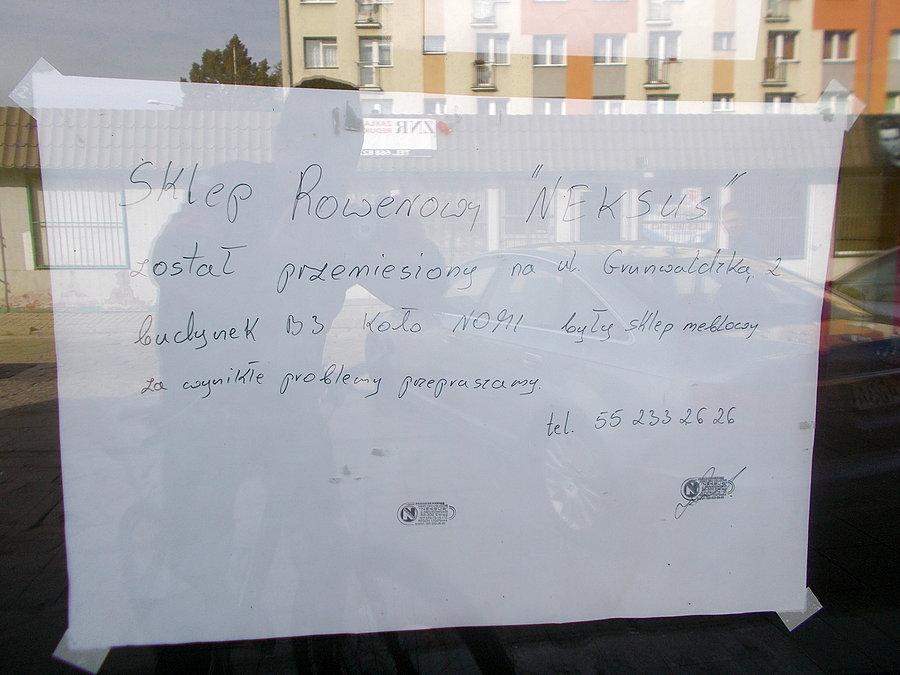 Sklep Rowerowy "NEKSUS"
został przemiesiony na ul. Grunwaldzką 2
budynek B3 koło NOMI były sklep meblowy
za wynikłe problemy przepraszamy.
tel. 55 233 26 26
ZNR
NEKSUS